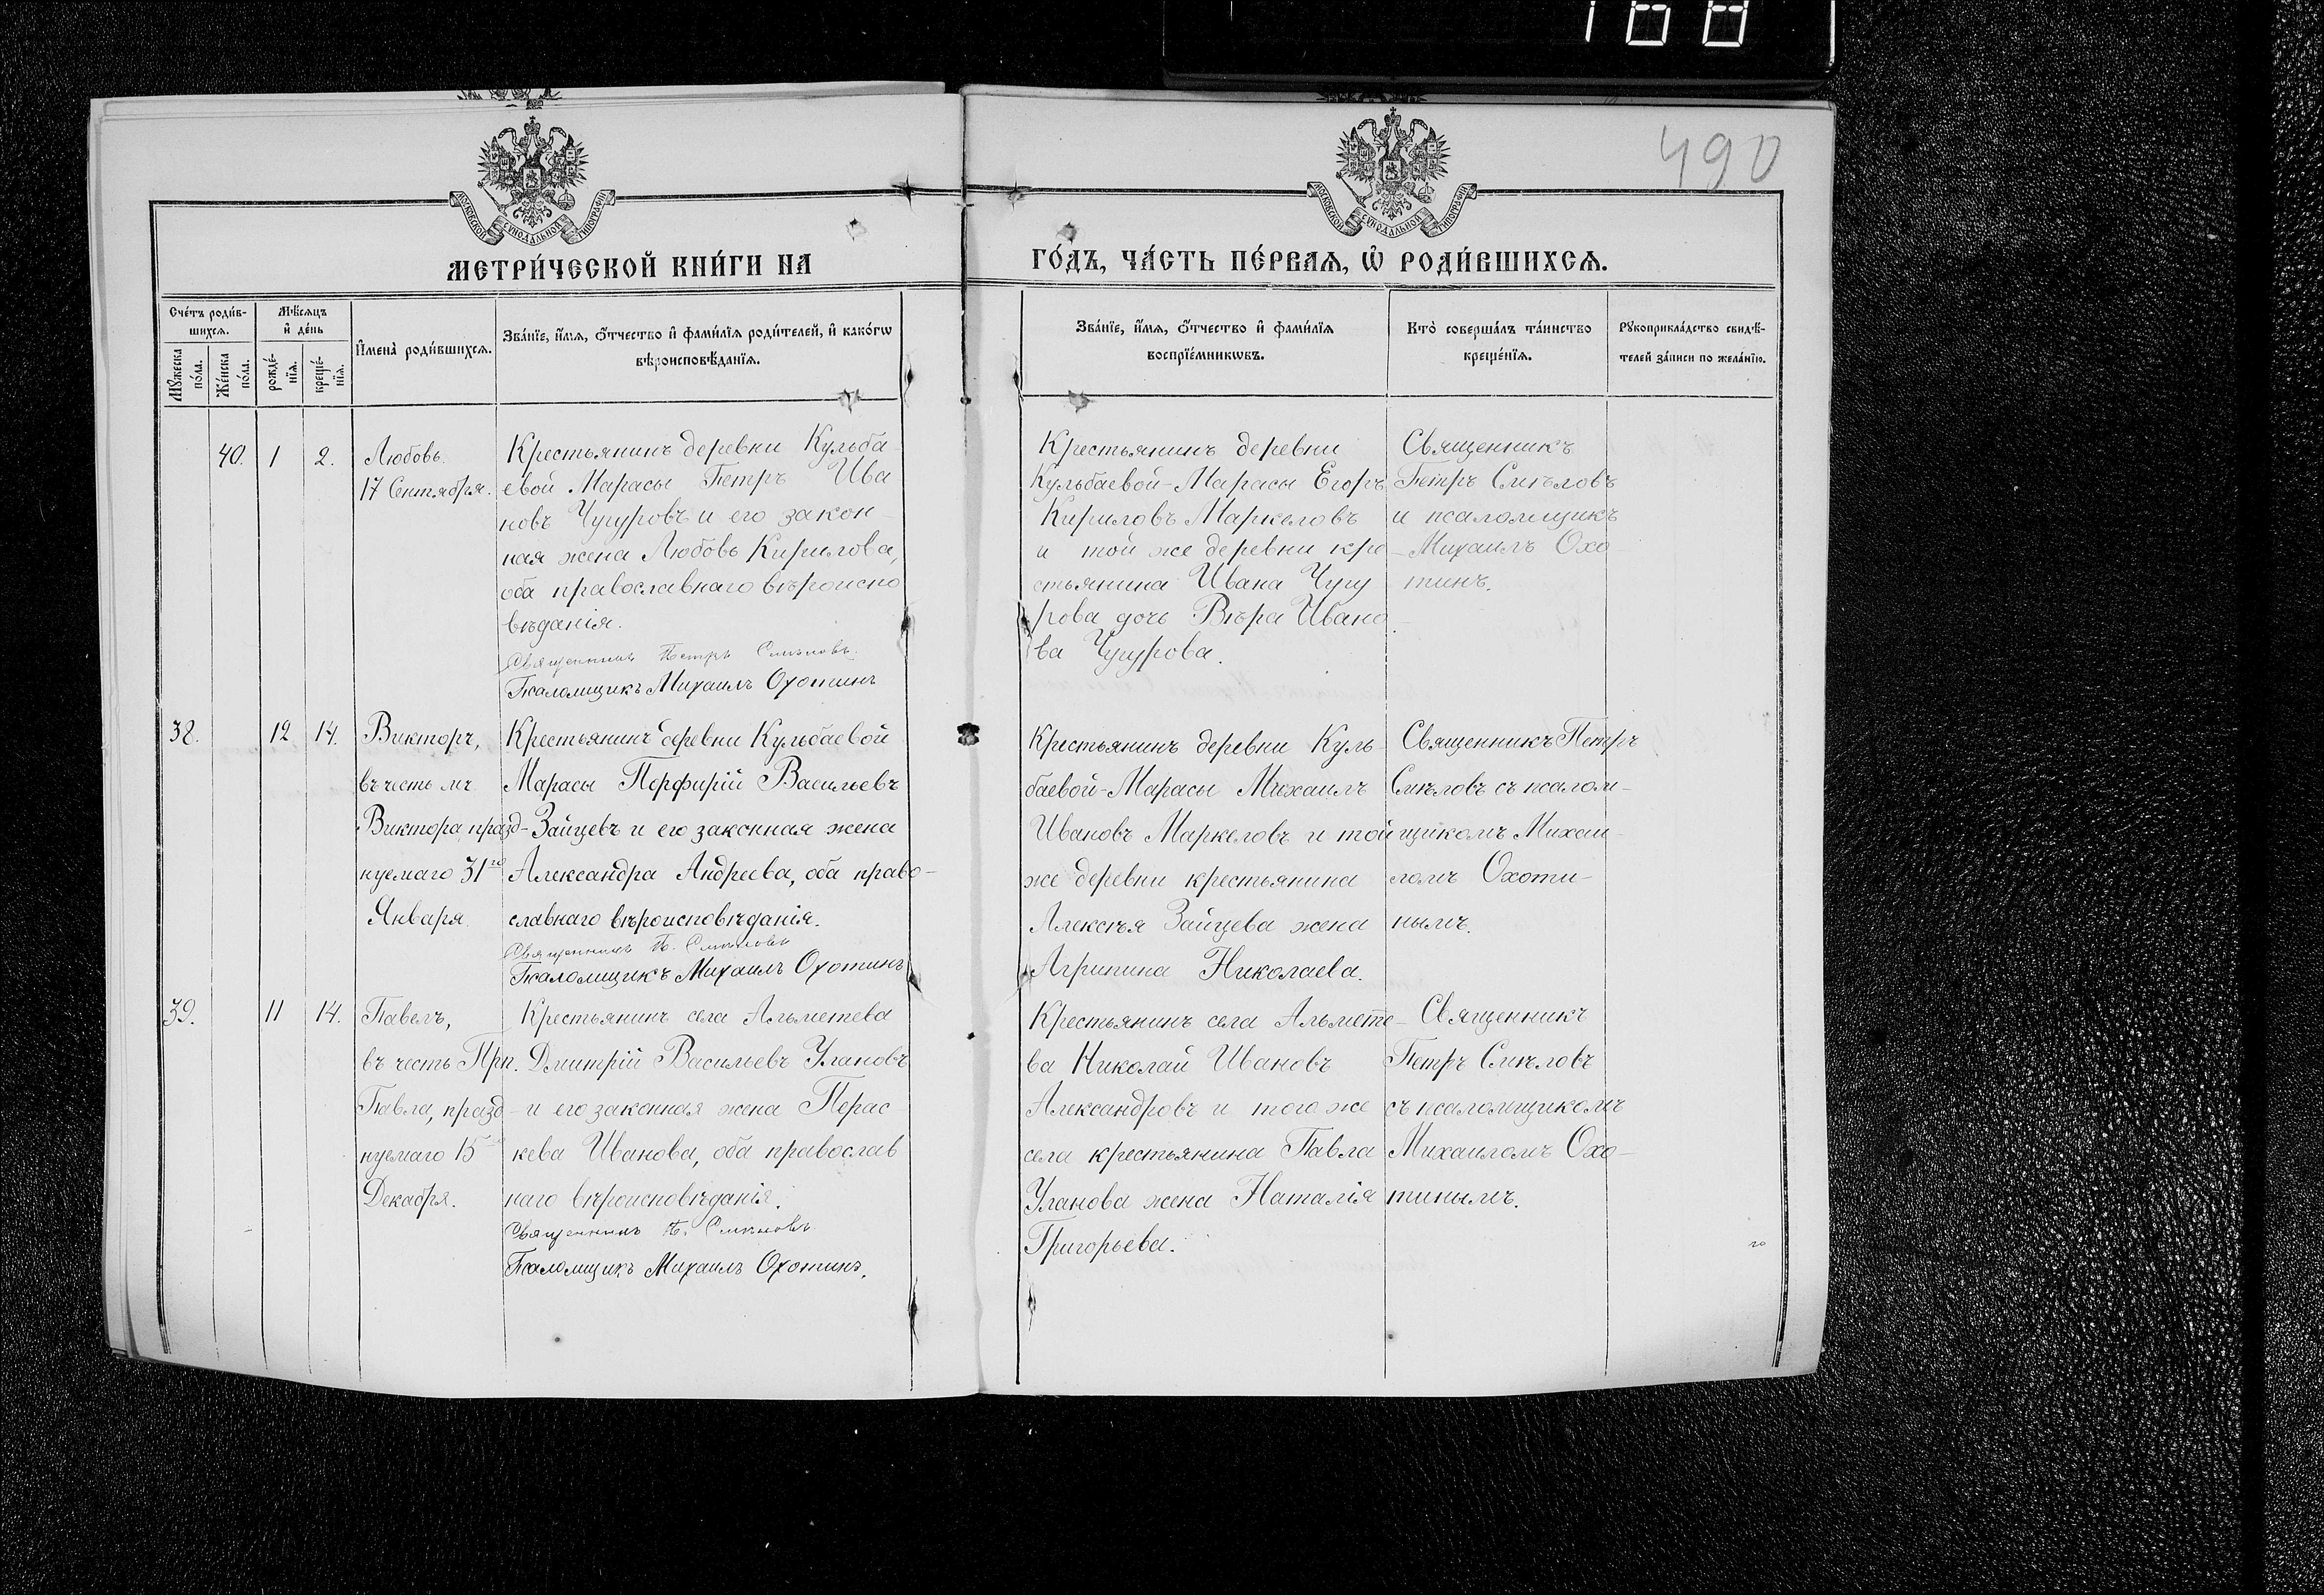 168
490
МОСКОВСКОЙ СУНОДАЛЬНОЙ ТИПОГРАФІИ
МОСКОВСКОЙ СУНОДАЛЬНОЙ ТИПОГРАФІИ
МЕТРИ́ЧЕСКОЙ КНИ́ГИ НА
ГО́ДЪ, ЧА́СТЬ ПЕ́РВАЯ, Ѽ РОДИ́ВШИХСЯ.
Сче́тъ роди́в-
шихся.
Мꙋ́жеска
по́ла.
Же́нска
по́ла.
Мѣ́сяцъ
и҆ де́нь
рожде́-
нїя.
креще́-
нїя.
И҆мена̀ роди́вшихся.
Зва́нїе, и҆́мя, ѻ҆́тчество и҆ фами́лїя роди́телей, и҆ како́гѡ
вѣроисповѣ́данїя.
Зва́нїе, и҆́мя, ѻ҆́тчество и҆ фами́лїя
воспрїе́мникѡвъ.
Кто̀ соверша́лъ та́инство
креще́нїя.
Рꙋкоприкла́дство свидѣ́-
телей за́писи по жела́нїю.
40.
1
2.
Любовь.
17 Сентября.
Крестьянинъ деревни Кульба
евой Марасы Петръ Ива
новъ Чугуровъ и его закон-
ная жена Любовь Кирилова,
оба православнаго вѣроиспо
вѣданія.
Священникъ Петръ Смѣловъ.
Псаломщикъ Михаилъ Охотинъ
Крестьянинъ деревни
Кульбаевой-Марасы Егоръ
Кириловъ Маркеловъ
и той же деревни кре
стьянина Ивана Чугу
рова дочь Вѣра Ивано
ва Чугурова.
Священникъ
Петръ Смѣловъ
и псаломщикъ
Михаилъ Охо
тинъ.
38.
12
14.
Викторъ,
въ честь мч
Виктора празд-
нуемаго 31го
Января.
Крестьянинъ деревни Кульбаевой
Марасы Перфирій Васильевъ
Зайцевъ и его законная жена
Александра Андреева, оба право-
славнаго вѣроисповѣданія.
Священникъ П. Смѣловъ
Псаломщикъ Михаилъ Охотинъ
Крестьянинъ деревни Куль-
баевой-Марасы Михаилъ
Ивановъ Маркеловъ и той
же деревни крестьянина
Алексѣя Зайцева жена
Агрипина Николаева.
Священникъ Петръ
Смѣловъ съ псалом-
щикомъ Михаи-
ломъ Охоти-
нымъ.
39.
11
14.
Павелъ,
въ честь Прп.
Павла, празд-
нуемаго 15
Декабря.
Крестьянинъ села Альметева
Дмитрій Васильевъ Улановъ
и его законная жена Перас
кева Иванова, оба православ
наго вѣроисповѣданія.
Священникъ П. Смѣловъ
Псаломщикъ Михаилъ Охотинъ.
Крестьянинъ села Альмете-
ва Николай Ивановъ
Александровъ и того же
села крестьянина Павла
Уланова жена Наталія
Григорьева.
Священникъ
Петръ Смѣловъ
съ псаломщикомъ
Михаиломъ Охо-
тинымъ.